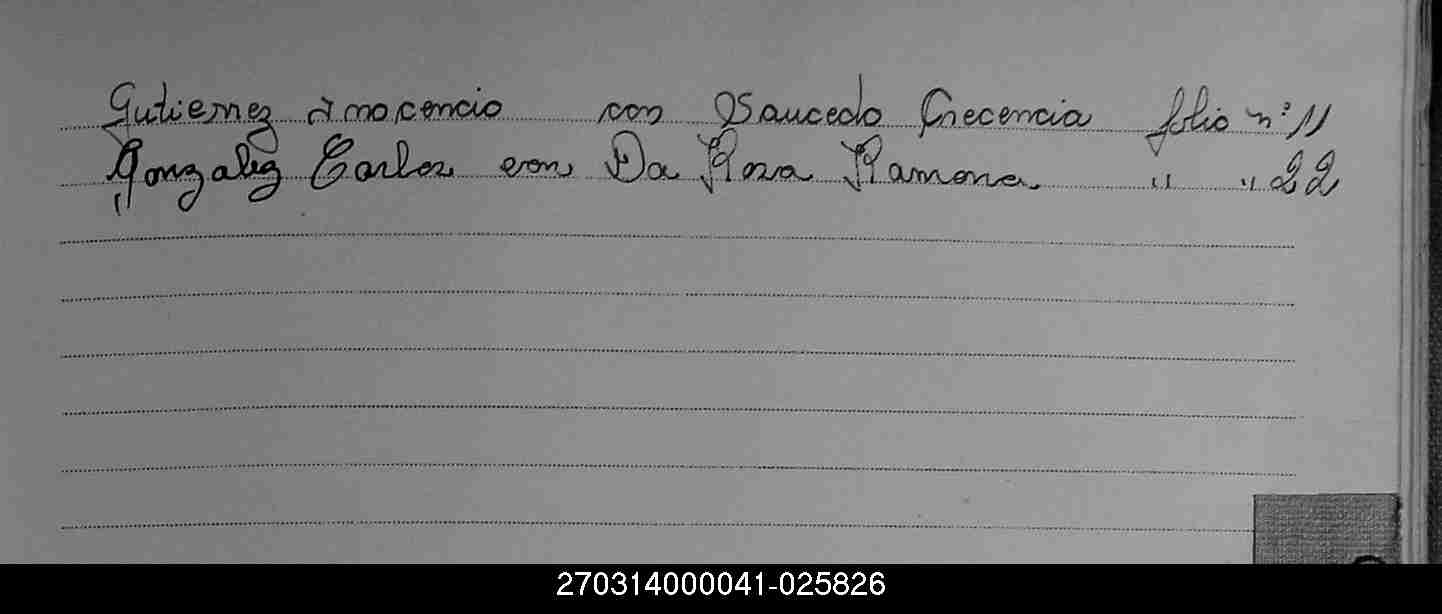 Gutierrez Inocencio con Saucedo Crecencia folio nº 11
Gonzalez Carlos con Da Rosa Ramona " " 22
270314000041-025826